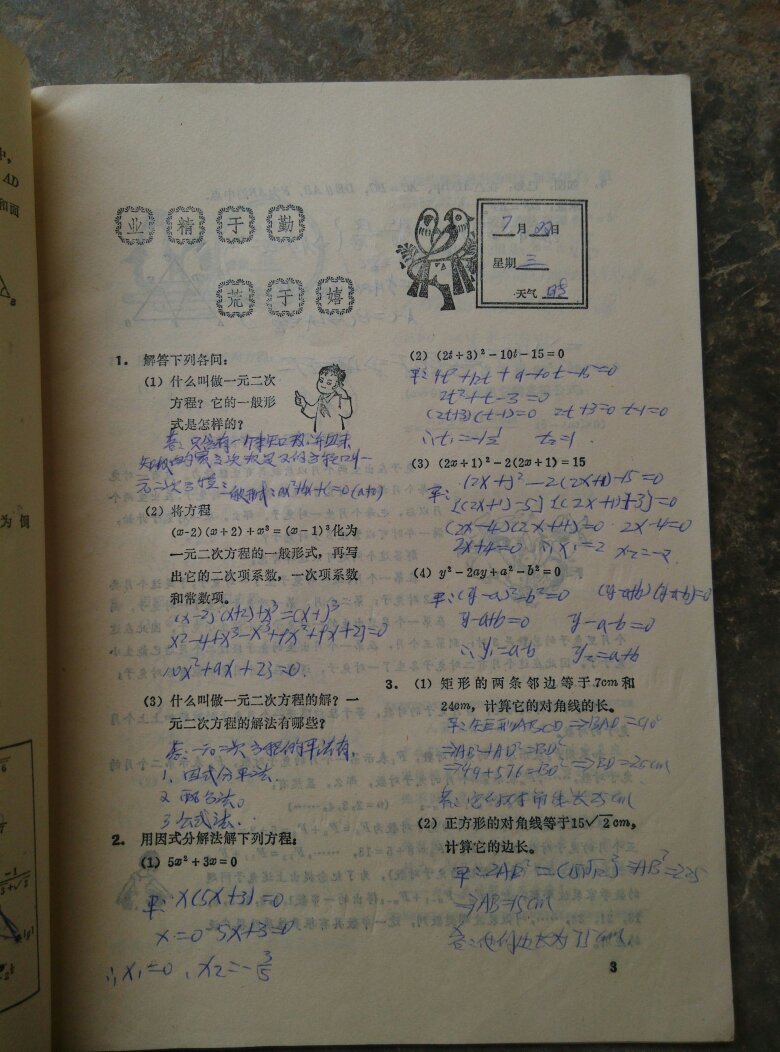 业精于勤
荒于嬉
7月23日
星期三
天气 晴
1. 解答下列各问:
(1) 什么叫做一元二次
方程?它的一般形
式是怎样的?
答:只含有一个未知数,并且未
一元二次方程. 一般形式: ax²+bx+c=0 (a≠0)
(2) 将方程
(x-2)(x+2)+x³=(x-1)³化为
一元二次方程的一般形式,再写
出它的二次项系数,一次项系数
和常数项。
(3) 什么叫做一元二次方程的解?一
元二次方程的解法有哪些?
答:一元二次方程的解法有,
1. 因式分解法.
2 配合法。
3 公式法.
2. 用因式分解法解下列方程:
(1) 5x²+3x=0
解: x(5x+3)=0
x=0 5x+3=0
∴x₁=0, x₂=-3/5
(2) (2t+3)²-10t-15=0
解: 4t²+12t+9-10t-15=0
2t²+t-3=0
(2t+3)(t-1)=0 2t+3=0 t-1=0
∴t₁=-1½ t₂=1.
(3) (2x+1)²-2(2x+1)=15
解: (2x+1)²-2(2x+1)-15=0
[(2x+1)-5][(2x+1)+3]=0
(2x-4)(2x+4)=0 2x-4=0
2x+4=0 ∴x₁=2 x₂=-2
(4) y²-2ay+a²-b²=0
解:(y-a)²-b²=0 (y-a+b)(y-a-b)=0
y-a+b=0 y-a-b=0
∴y₁=a-b y₂=a+b
3. (1) 矩形的两条邻边等于7cm和
24cm,计算它的对角线的长。
解:矩形ABCD⇒∠BAD=90°
⇒AB²+AD²=BD²
⇒49+576=BD²⇒BD=25cm
答:它的对角线长25cm
(2) 正方形的对角线等于15√2cm,
计算它的边长。
解:2AB²=(15√2)²⇒AB²=225
⇒AB=15cm
3